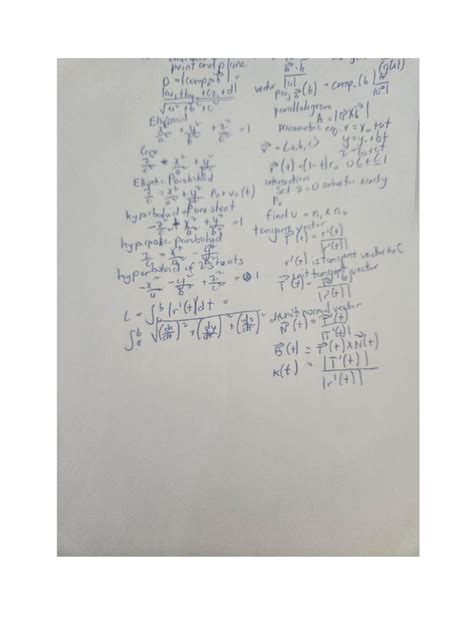 point and plane
D = |comp b|
|ax₁+by₁+cz₁+d|
√a²+b²+c²
Ellipsoid
x²/a² + y²/b² + z²/c² = 1
z²/c² = x²/a² + y²/b²
Elliptic Paraboloid
z/c = x²/a² + y²/b²
hyperboloid of one sheet
-z²/c² + x²/a² + y²/b² = 1
hyperbolic Paraboloid
z/c = x²/a² - y²/b²
hyperboloid of 2 sheets
-x²/a² - y²/b² + z²/c² = 1
L = ∫ₐᵇ |r'(t)|dt =
∫ₐᵇ √(dx/dt)² + (dy/dt)² + (dz/dt)²
a · b
|a|
vector proj (b) = comp (b)
parallelogram
A = |a×b|
parametric eq. x = x₀+at
v = <a,b,c> y = y₀+bt
z = z₀+ct
r(t) = (1-t)r₀ 0≤t≤1
intersection
Set z=0 solve for x and y
P₀ + v₀(t) P₀
find v = n₁ × n₂
tangent vector
T(t) = r'(t)/|r'(t)|
r'(t) is tangent vector
unit tangent vector
T(t) = r'(t)/|r'(t)|
unit normal vector
N(t) = T'(t)/|T'(t)|
B(t) = T(t) × N(t)
κ(t) = |T'(t)|/|r'(t)|